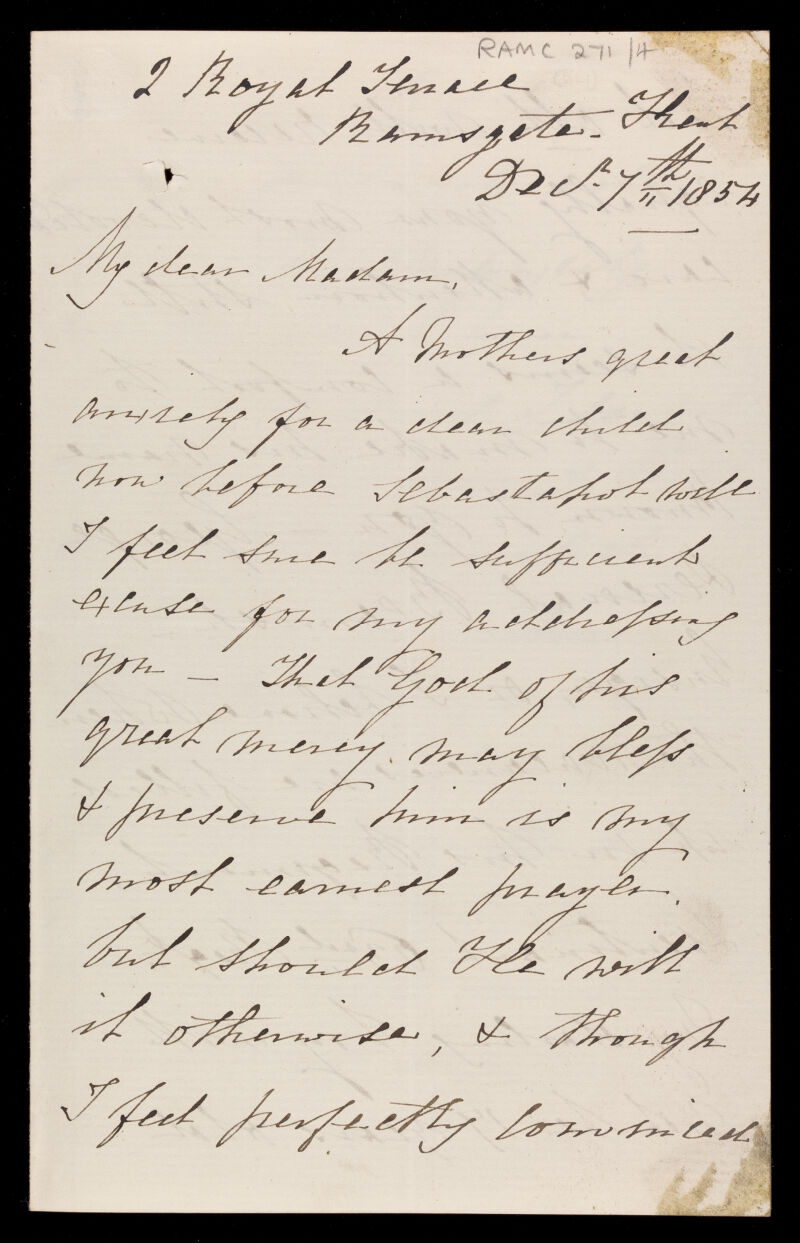 RAMC 271/4
2 Royal Terrace
Ramsgate - Kent
Decr. 7th 1854
My dear Madam,
A Mothers great
anxiety for a dear child
now before Sebastapol will
I feel sure be sufficient
excuse for my addressing
you - That God of his
great mercy may bless
& preserve him is my
most earnest prayer.
but should He will
it otherwise, & though
I feel perfectly convinced